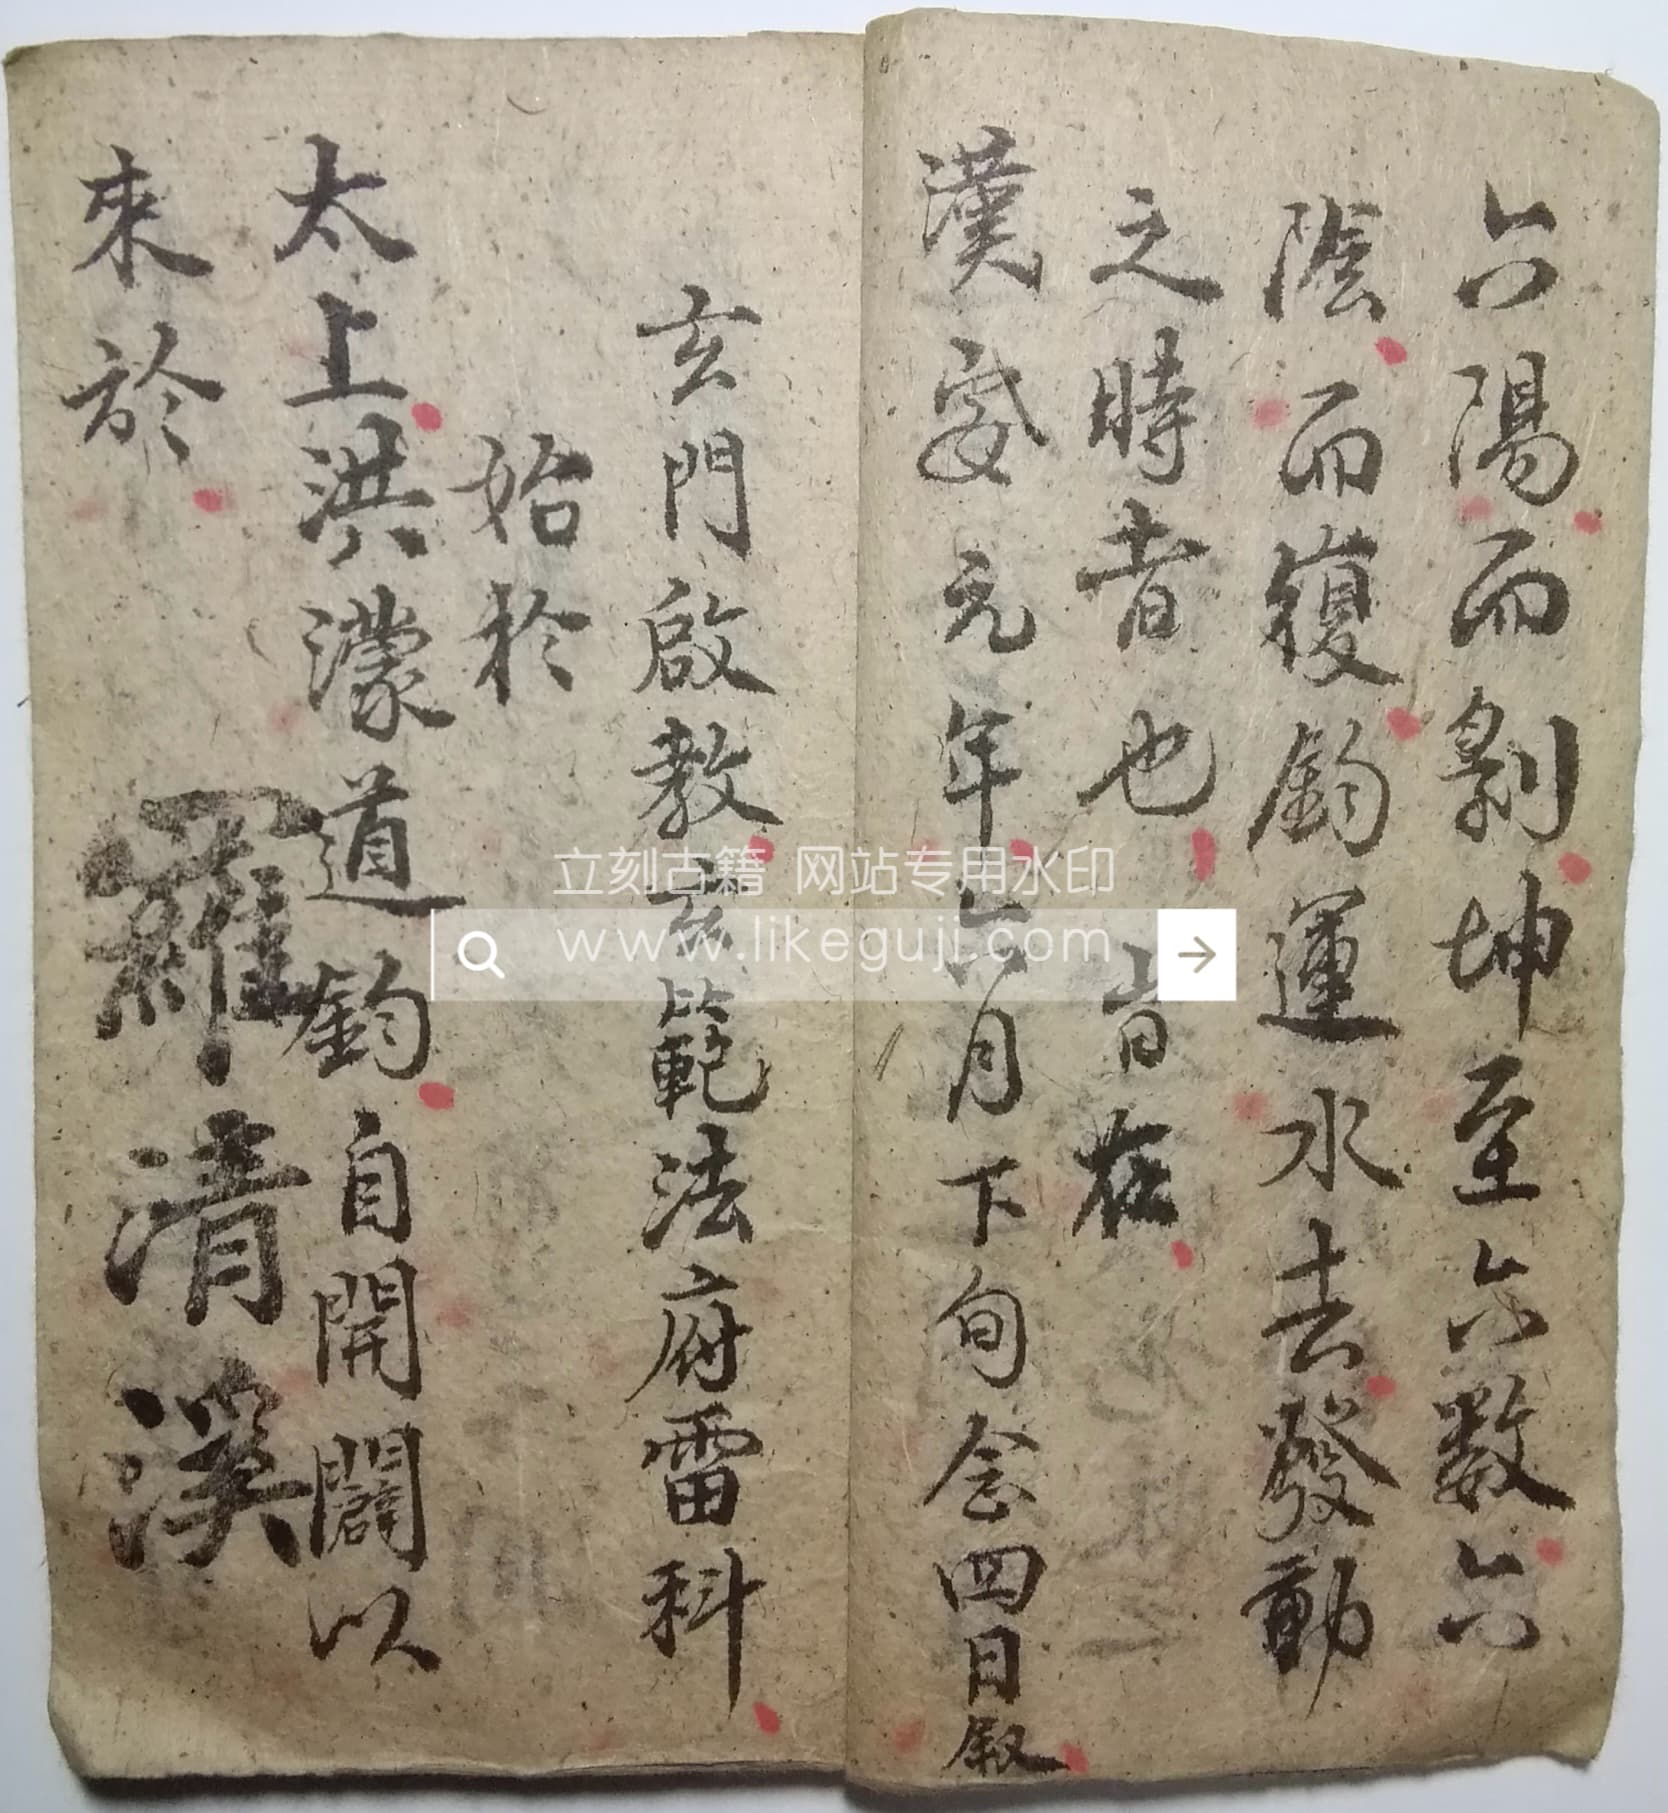 六陽而剝坤至六數六
陰而復鈞運水去發動
之時者也 旹在
漢安元年六月下旬念四日叙
玄門啟教 範法府雷科
始於
太上洪濛道鈞自開闢以
來於
羅清溪
立刻古籍 网站专用水印
www.likeguji.com